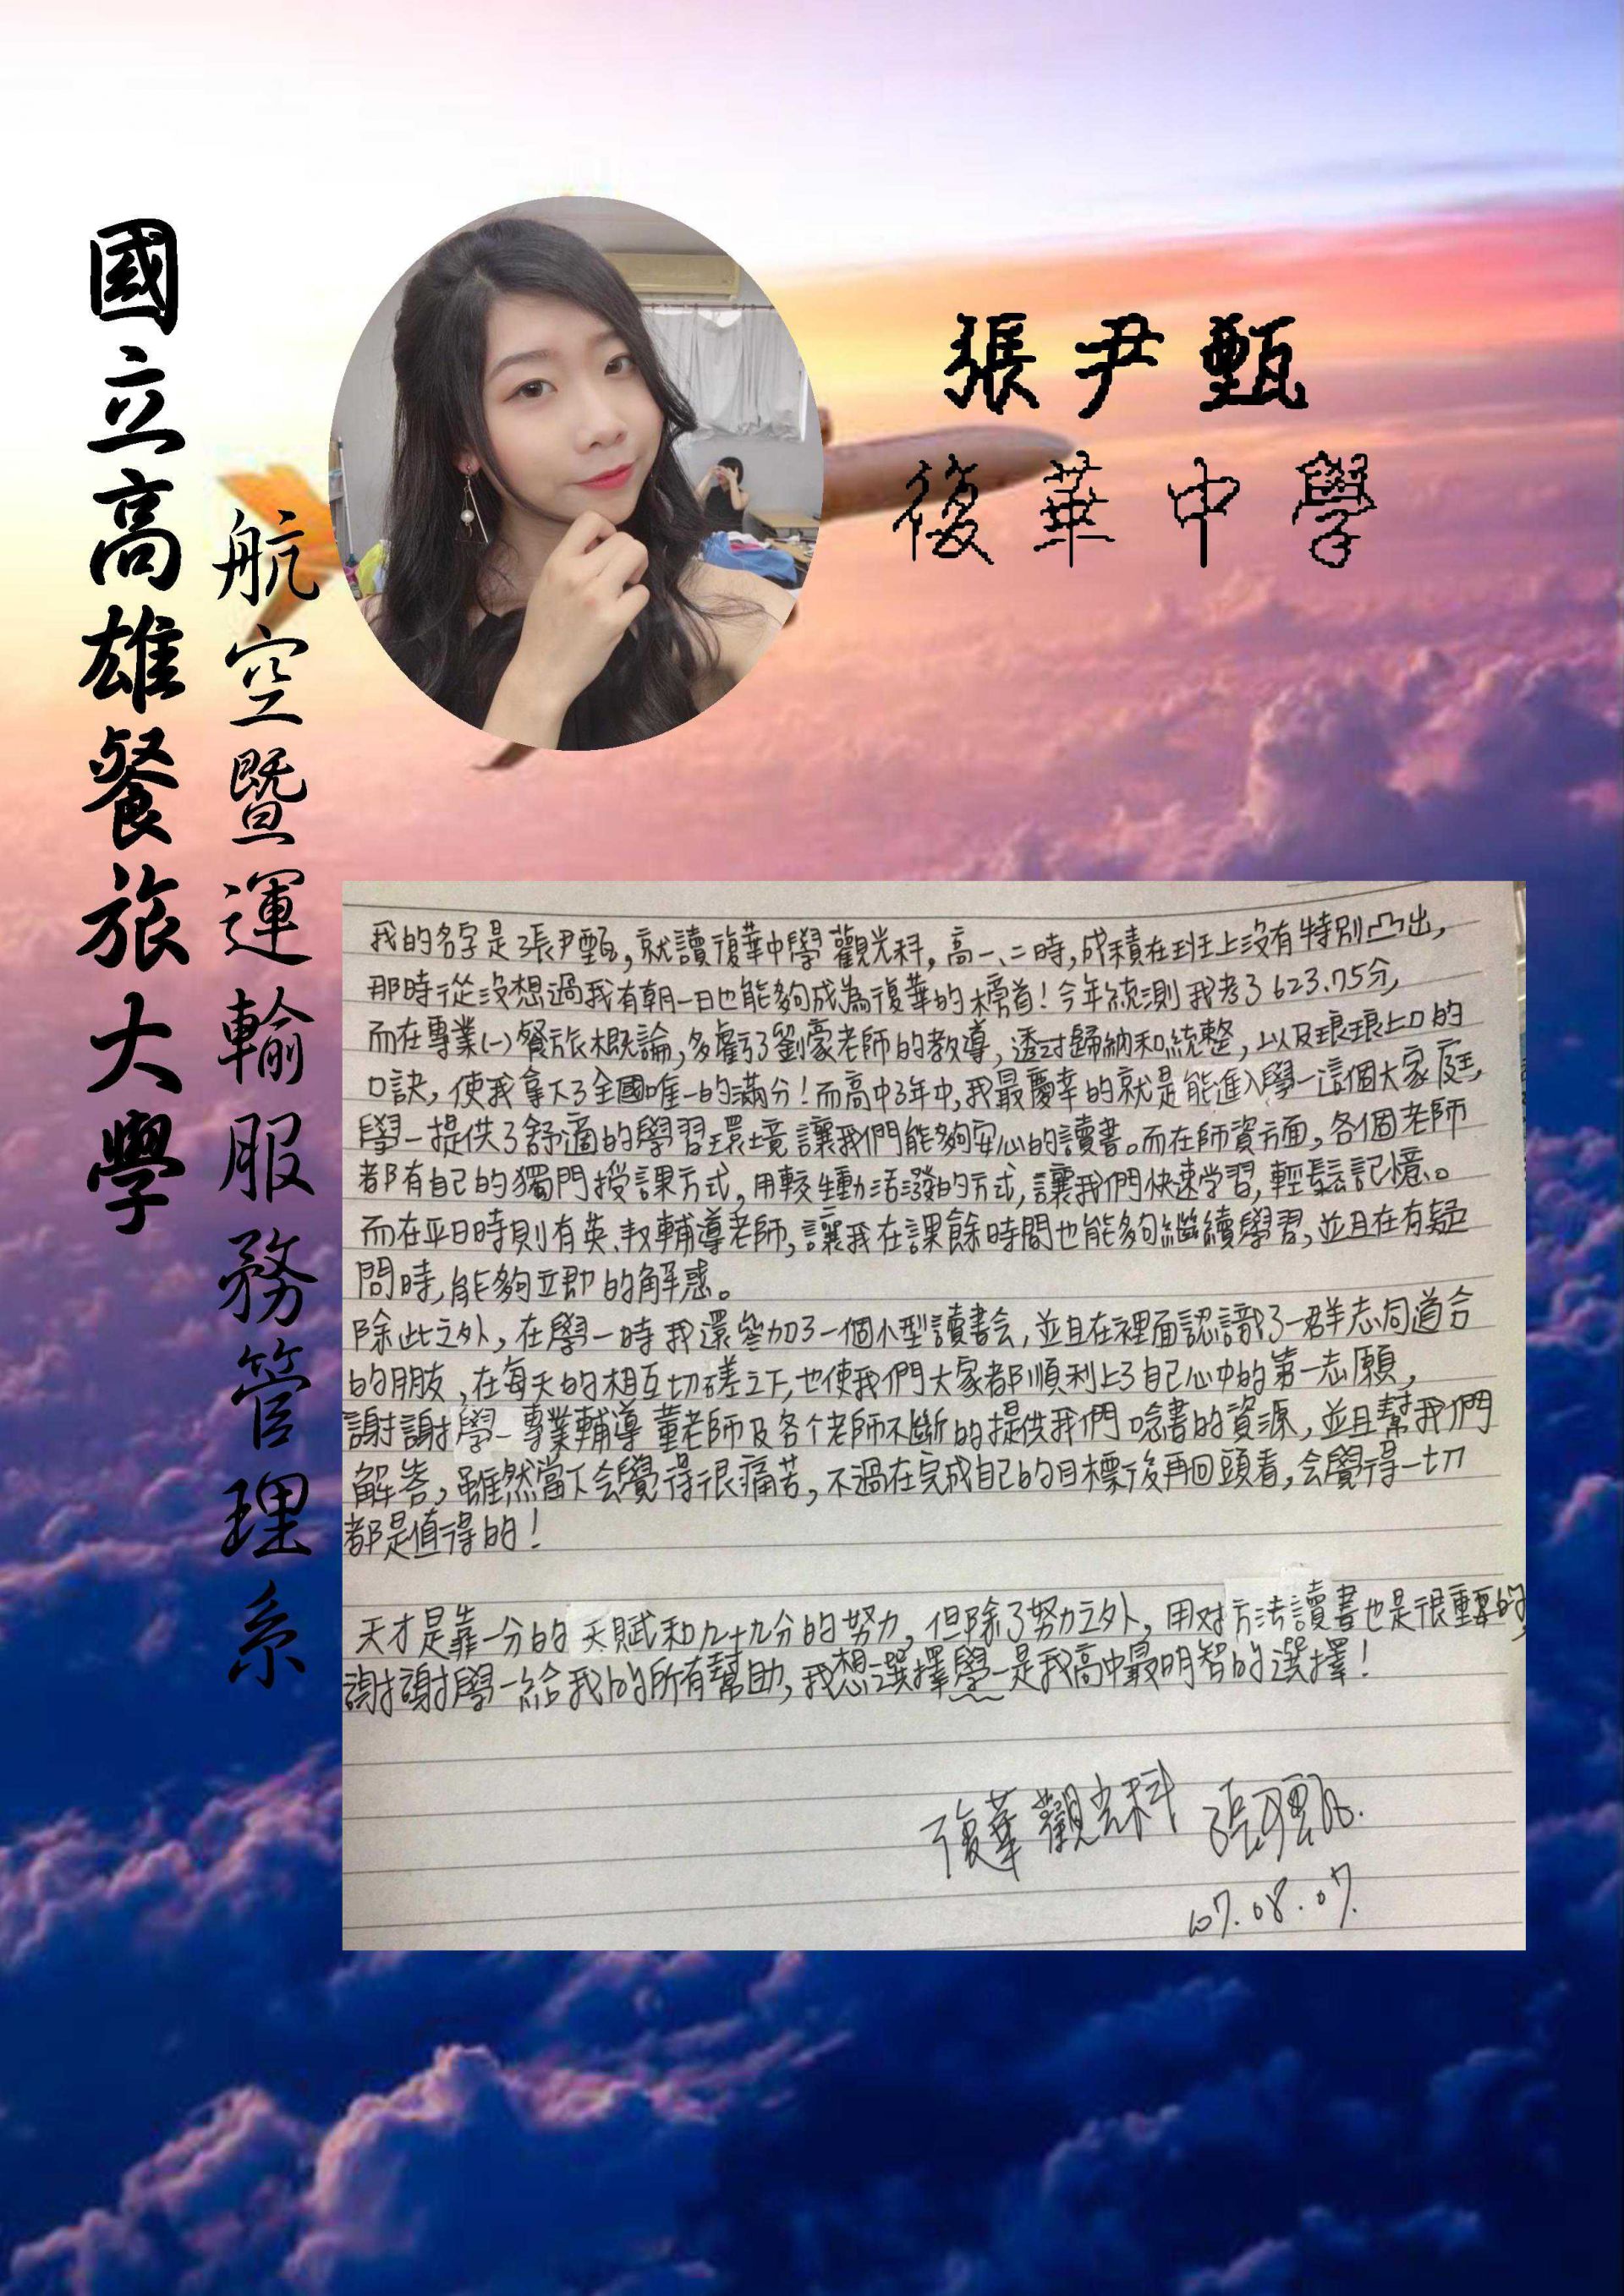 國立高雄餐旅大學
航空暨運輸服務管理系
張尹甄
復華中學
我的名字是張尹甄，就讀復華中學觀光科，高一、二時，成積在班上沒有特別凸出，
那時從沒想過我有朝一日也能夠成為復華的榜首！今年統測我考了623.75分，
而在專業(一)餐旅概論，多虧了劉豪老師的教導，透過歸納和統整，以及琅琅上口的
口訣，使我拿下了全國唯一的滿分！而高中3年中，我最慶幸的就是能進入學一這個大家庭，
學一提供了舒適的學習環境讓我們能夠安心的讀書。而在師資方面，各個老師
都有自己的獨門授課方式，用較生動活潑的方式，讓我們快速学習，輕鬆記憶。
而在平日時則有英、数輔導老師，讓我在課餘時間也能夠繼續學習，並且在有疑
問時，能夠立即的解惑。
除此之外，在學一時我還參加了一個小型讀書会，並且在裡面認識了一群志同道合
的朋友，在每天的相互切磋之下，也使我們大家都順利上了自己心中的第一志願，
謝謝學一專業輔導董老師及各个老師不斷的提供我們唸書的資源，並且幫我們
解答，雖然當下会覺得很痛苦，不過在完成自己的目標後再回頭看，会覺得一切
都是值得的！
天才是靠一分的天賦和九十九分的努力，但除了努力之外，用对方法讀書也是很重要的，
謝謝學一給我的所有幫助，我想選擇學一是我高中最明智的選擇！
復華觀光科 張尹甄.
107.08.07.